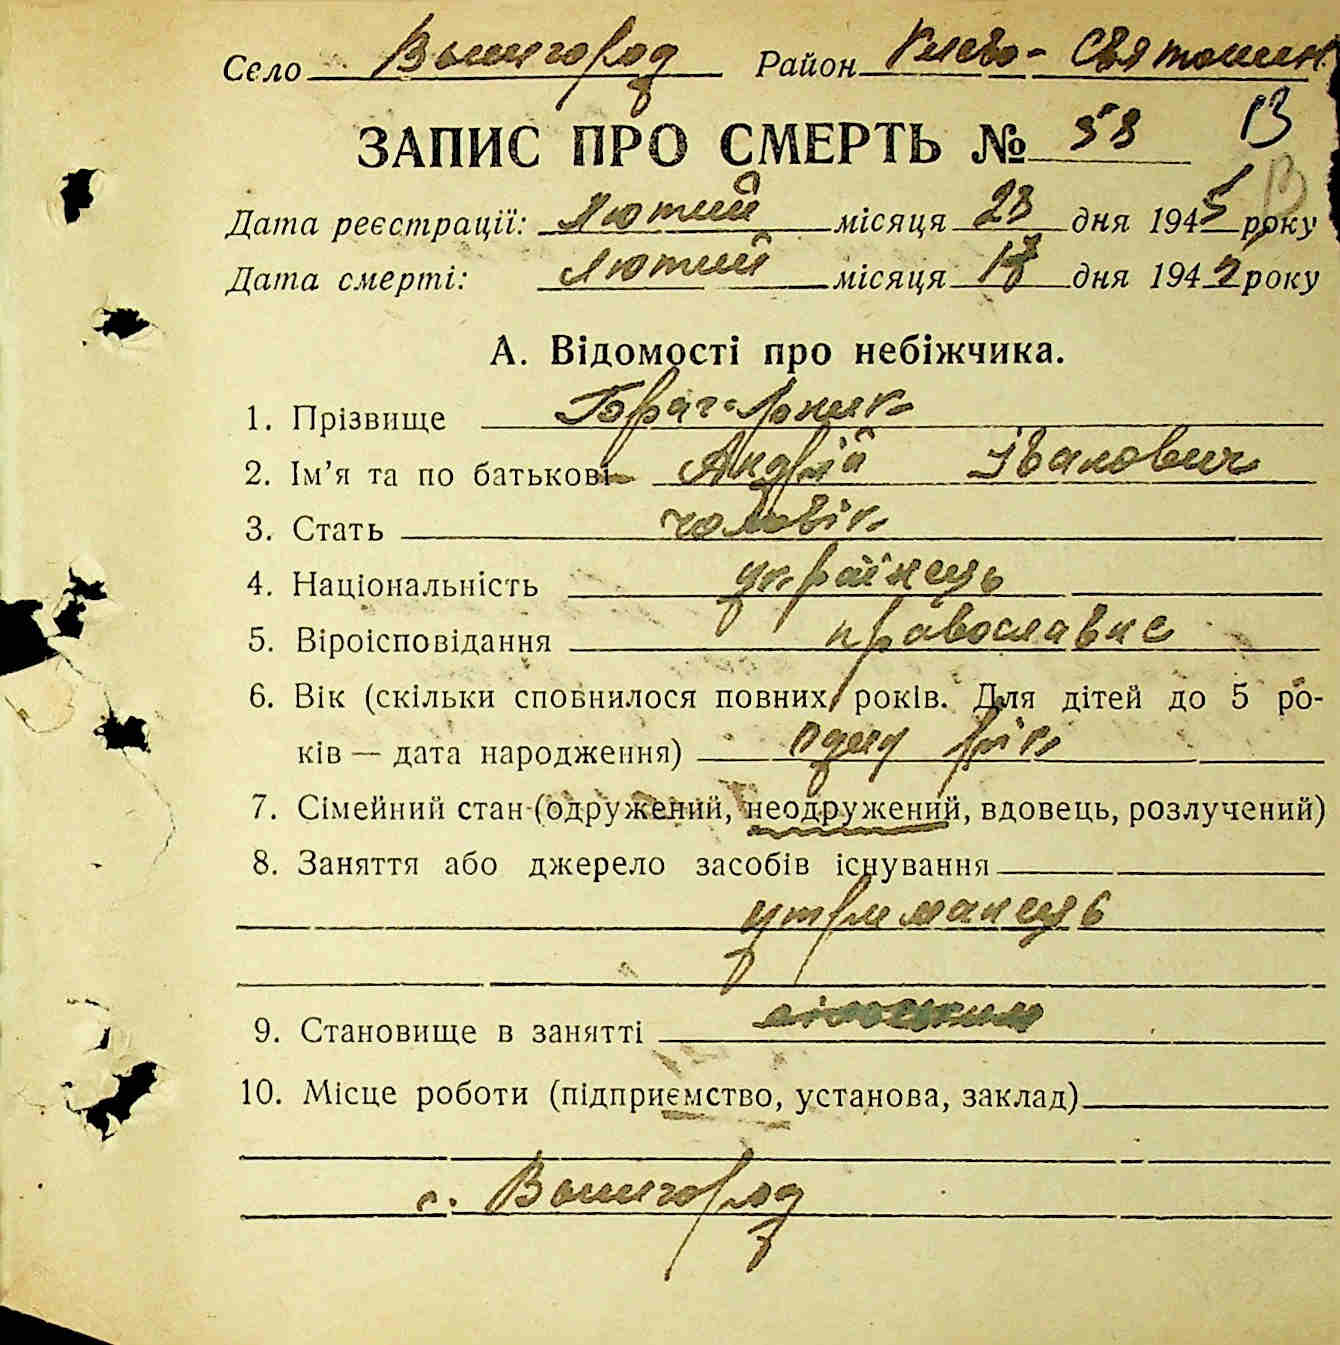 Село Вышгород Район Києво-Святошин
ЗАПИС ПРО СМЕРТЬ № 58 В
Дата реєстрації: Лютий місяця 23 дня 1945 року
Дата смерті: Лютий місяця дня 194 року
А. Відомості про небіжчика.
1. Прізвище
2. Ім’я та по батькові Андрій Іванович
3. Стать чоловік
4. Національність українець
5. Віроісповідання православне
6. Вік (скільки сповнилося повних років. Для дітей до 5 ро-
ків — дата народження) один рік
7. Сімейний стан (одружений, неодружений, вдовець, розлучений)
8. Заняття або джерело засобів існування
утриманець
9. Становище в занятті
10. Місце роботи (підприємство, установа, заклад)
с. Вышгород